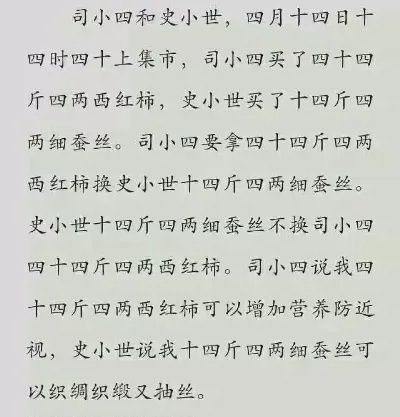 司小四和史小世，四月十四日十
四时四十上集市，司小四买了四十四
斤四两西红柿，史小世买了十四斤四
两细蚕丝。司小四要拿四十四斤四两
西红柿换史小世十四斤四两细蚕丝。
史小世十四斤四两细蚕丝不换司小四
四十四斤四两西红柿。司小四说我四
十四斤四两西红柿可以增加营养防近
视，史小世说我十四斤四两细蚕丝可
以织绸织缎又抽丝。